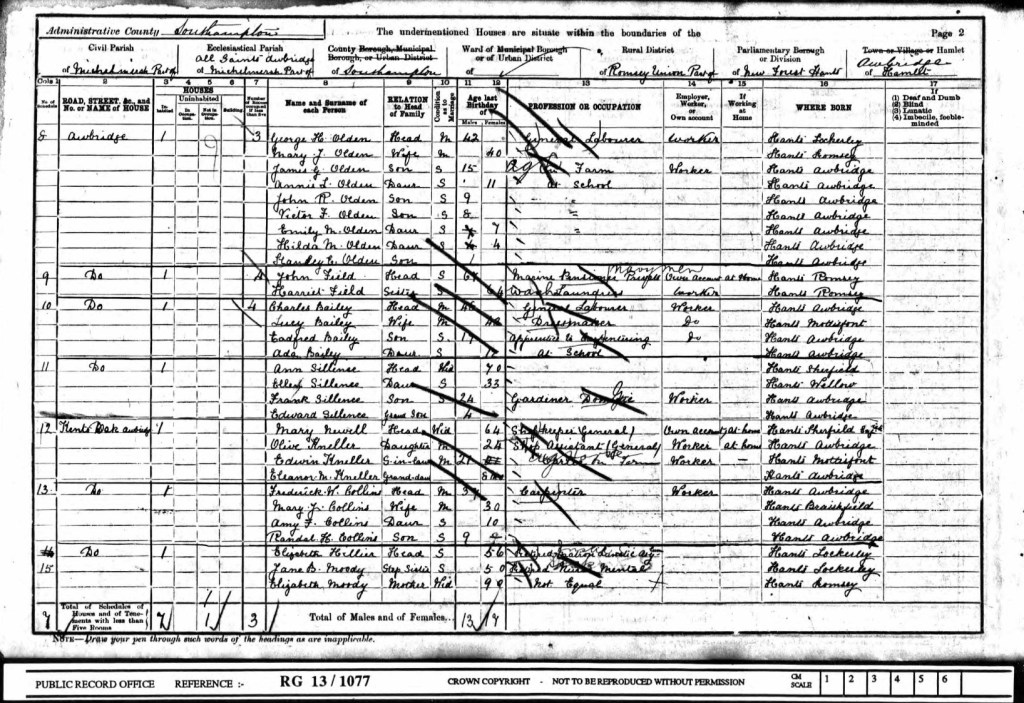 Administrative County Southampton The undermentioned Houses are situate within the boundaries of the Page 2
Civil Parish Ecclesiastical Parish County Borough, Municipal Borough, or Urban District Ward of Municipal Borough or of Urban District Rural District Parliamentary Borough or Division Town or Village or Hamlet
of Michelmersh Part of All Saints Awbridge of Michelmersh Part of of Southampton of of Romsey Union Part of of New Forest Hants Awbridge of Hamlet
Cols 1 2 3 4 5 6 7 8 9 10 11 12 13 14 15 16 17
No. of Schedule ROAD, STREET, &c., and No. or NAME of HOUSE HOUSES Inhabited Uninhabited In Occupation Not in Occupation Building Name and Surname of each Person RELATION to Head of Family Condition as to Marriage Age last Birthday of Males Females PROFESSION OR OCCUPATION Employer, Worker, or Own account If Working at Home WHERE BORN If (1) Deaf and Dumb (2) Blind (3) Lunatic (4) Imbecile, feeble-minded
8 Awbridge 1 3 George H. Olden Head M 42 General Labourer Worker Hants Lockerley
Mary J. Olden Wife M 40 Hants Romsey
James G. Olden Son S 15 Ag on Farm Worker Hants Awbridge
Annie L. Olden Daur S 11 At School Hants Awbridge
John R. Olden Son S 9 " Hants Awbridge
Victor F. Olden Son S 8 " Hants Awbridge
Emily M. Olden Daur S 7 " Hants Awbridge
Hilda M. Olden Daur S 4 Hants Awbridge
Stanley C. Olden Son 1 Hants Awbridge
9 Do 1 4 John Field Head S 67 Marine Private Own account at Home Hants Romsey
Harriet Field Sister 64 Wash Laundress Worker Hants Romsey
10 Do 1 4 Charles Bailey Head M 46 General Labourer Worker Hants Awbridge
Lucy Bailey Wife M 48 Dressmaker Do Hants Mottisfont
Eadfred Bailey Son S 17 Apprentice to Carpentering Do Hants Awbridge
Ada Bailey Daur S At School Hants Awbridge
11 Do 1 Ann Sillence Head Wid 70 Hants Sherfield
Ellen Sillence Daur S 33 Hants Wellow
Frank Sillence Son S 24 Gardiner Domestic Worker Hants Awbridge
Edward Sillence Grand Son 4 Hants Awbridge
12 Kents Oak Awbridge 1 Mary Newell Head Wid 64 Shopkeeper (General) Own account at home Hants Sherfield
Olive Kneller Daughter M 24 Shop Assistant (General) Worker at home Hants Awbridge
Edwin Kneller S-in-law M 21 on Farm Worker Hants Mottisfont
Eleanor M. Kneller Grand-daur Hants Awbridge
13 Do 1 Frederick W. Collins Head M Carpenter Worker Hants Awbridge
Mary J. Collins Wife M 30 Hants Braishfield
Amy F. Collins Daur S 10 Hants Awbridge
Randal H. Collins Son S 9 Hants Awbridge
14 Do 1 Elizabeth Hillier Head S 56 Hants Lockerley
15 Jane B. Moody Step Sister S 50 Retired Nurse Mental Hants Lockerley
Elizabeth Moody Mother Wid 90 Not Equal Hants Romsey
7 Total of Schedules of Houses and of Tenements with less than Five Rooms 7 1 3 Total of Males and of Females... 13 17
NOTE—Draw your pen through such words of the headings as are inapplicable.
PUBLIC RECORD OFFICE REFERENCE :- RG 13/1077 CROWN COPYRIGHT - NOT TO BE REPRODUCED WITHOUT PERMISSION CM SCALE 1 2 3 4 5 6